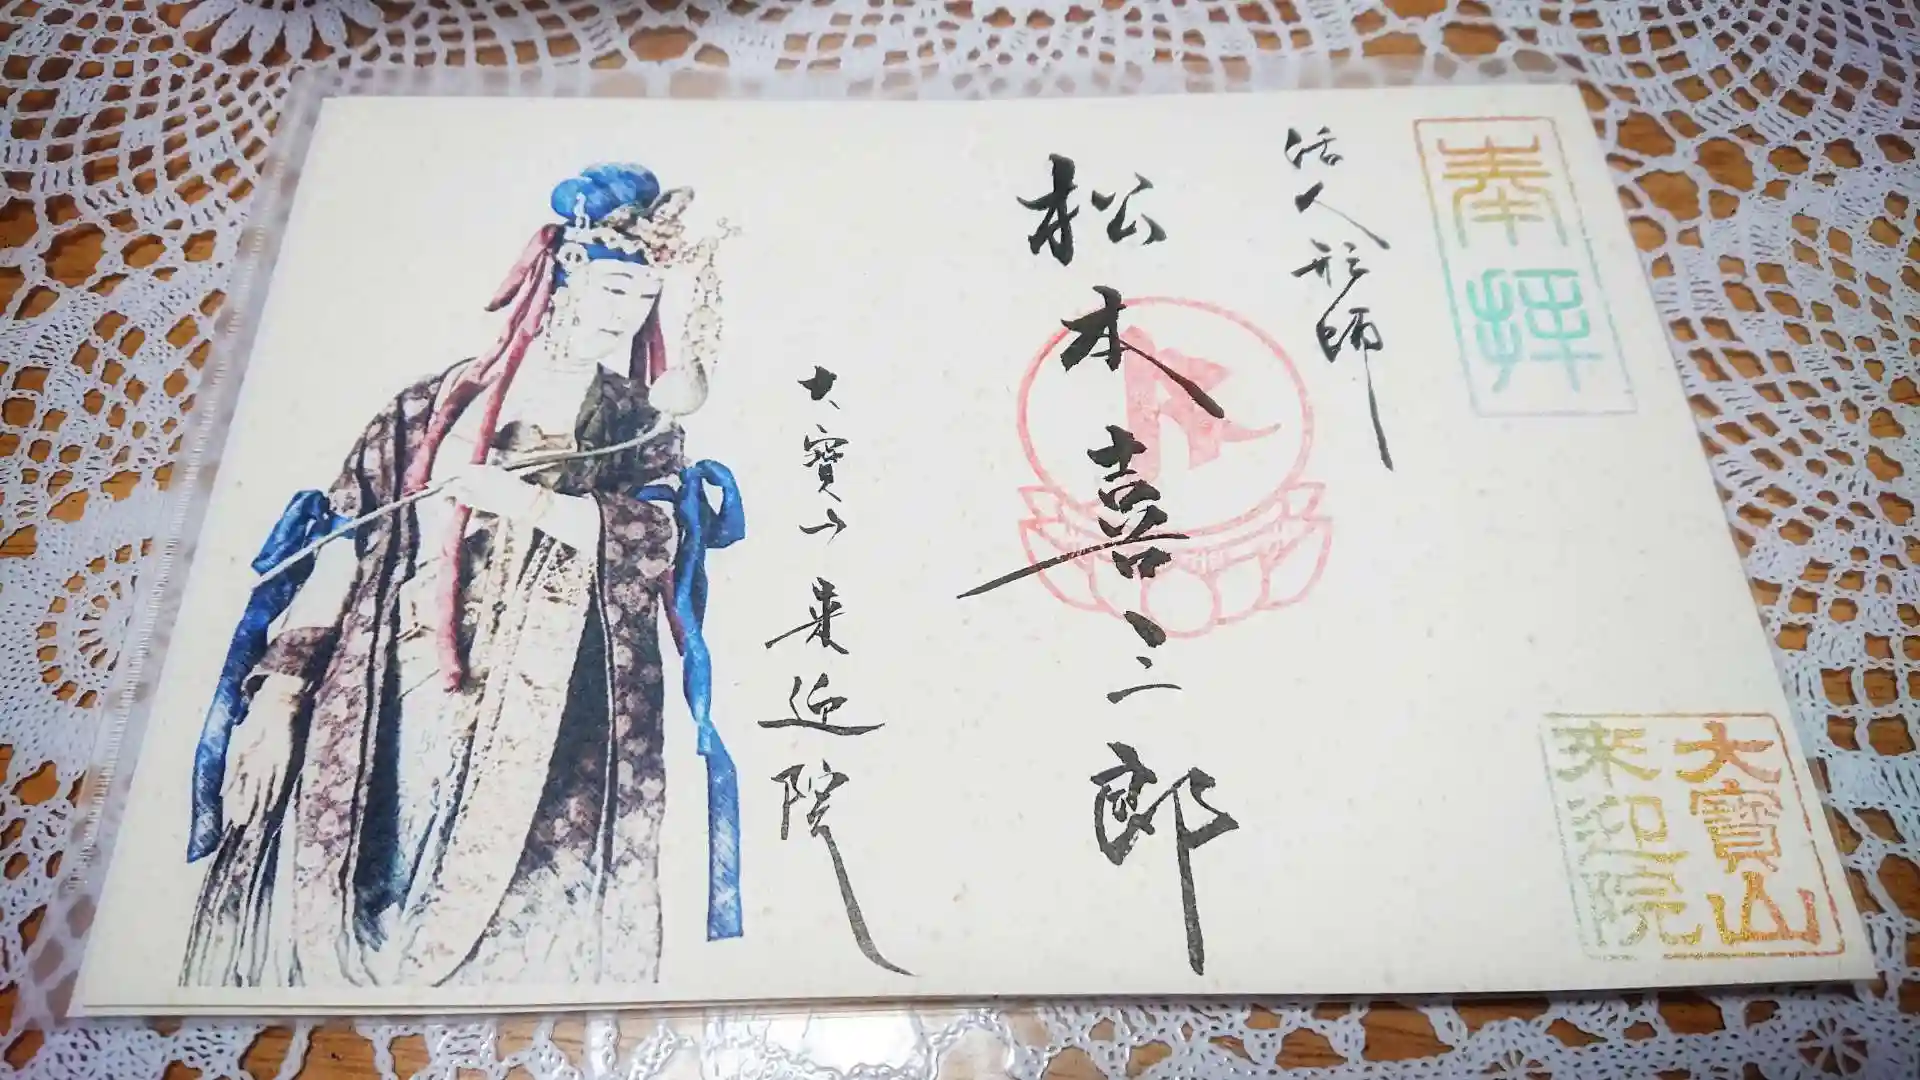 奉拝
活人形師
松本喜三郎
大寶山来迎院
大寶山
来迎院